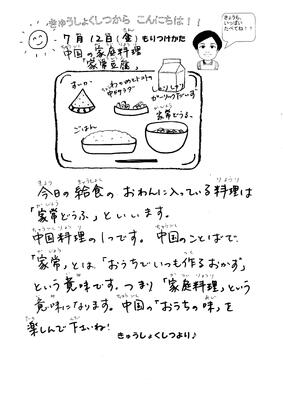 きゅうしょくしつから こんにちは！！
7月12日(金) もりつけかた
中国の家庭料理
「家常豆腐」
きょうも、
いっぱい
たべてね！！
すいか
わかめとトマトの
中華サラダ
ガーリックビーンズ
家常どうふ
ごはん
今日の給食のおわんに入っている料理は
「家常どうふ」といいます。
中国料理の1つです。中国のことばで、
「家常」とは「おうちでいつも作るおかず」
という意味です。つまり「家庭料理」という
意味になります。中国の「おうちの味」を
楽しんで下さいね！
きゅうしょくしつより♪